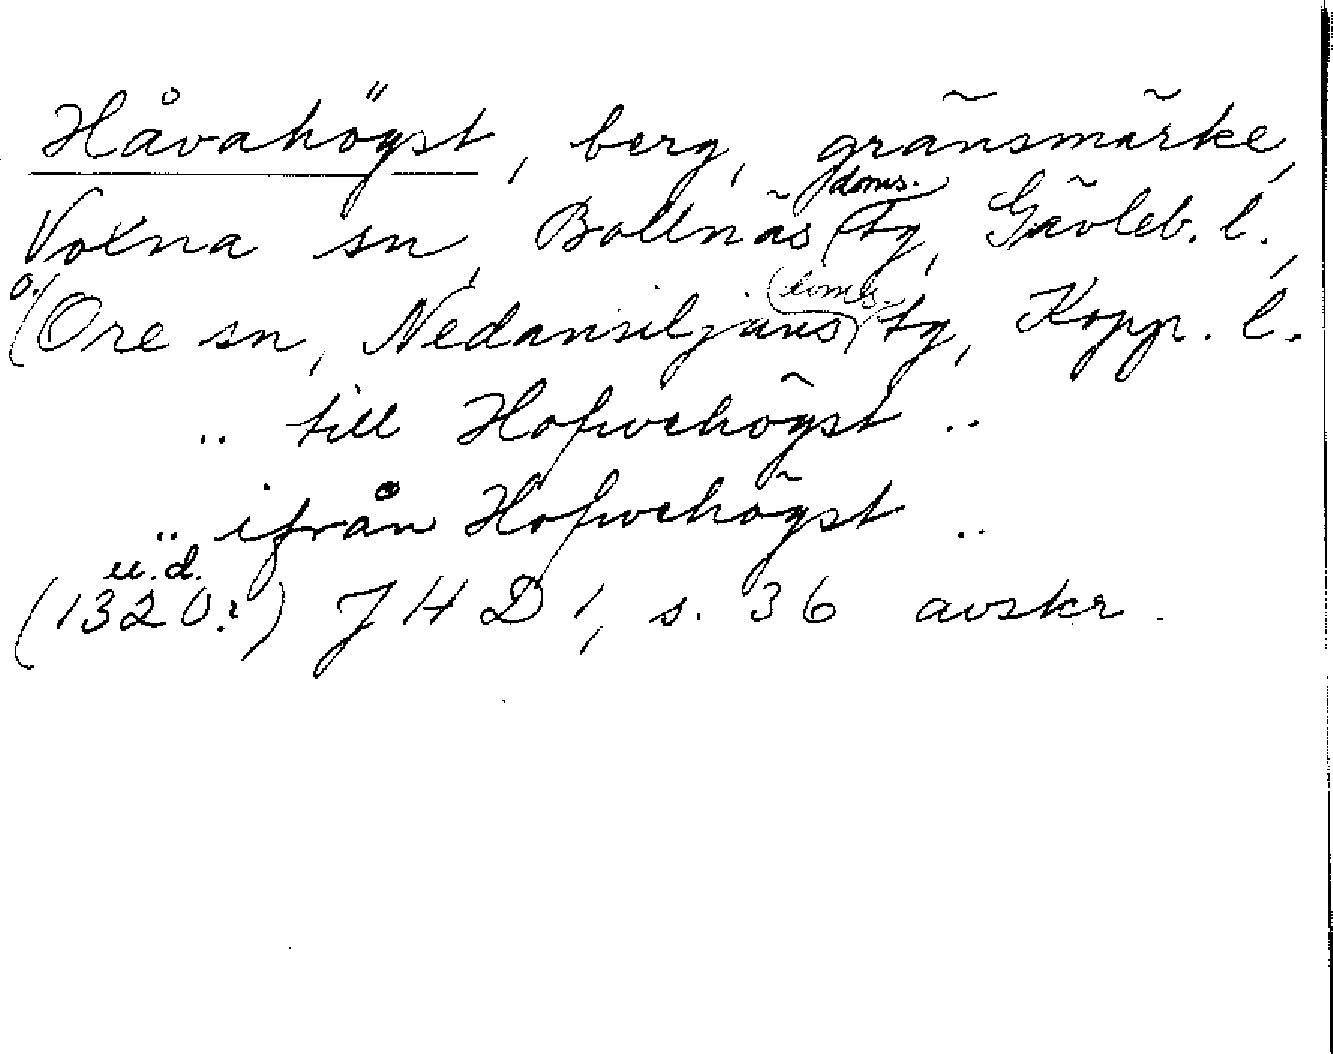 Håvahögst, berg, gränsmärke,
Voxna sn, Bollnäs doms. tg, Gävleb. l.,
o. Ore sn, Nedansiljans doms. tg, Kopp. l.
.. till Hofwehögst ..
.. ifrån Hofwehögst ..
u.d.
(1320?) JHD 1, s. 36 avskr.